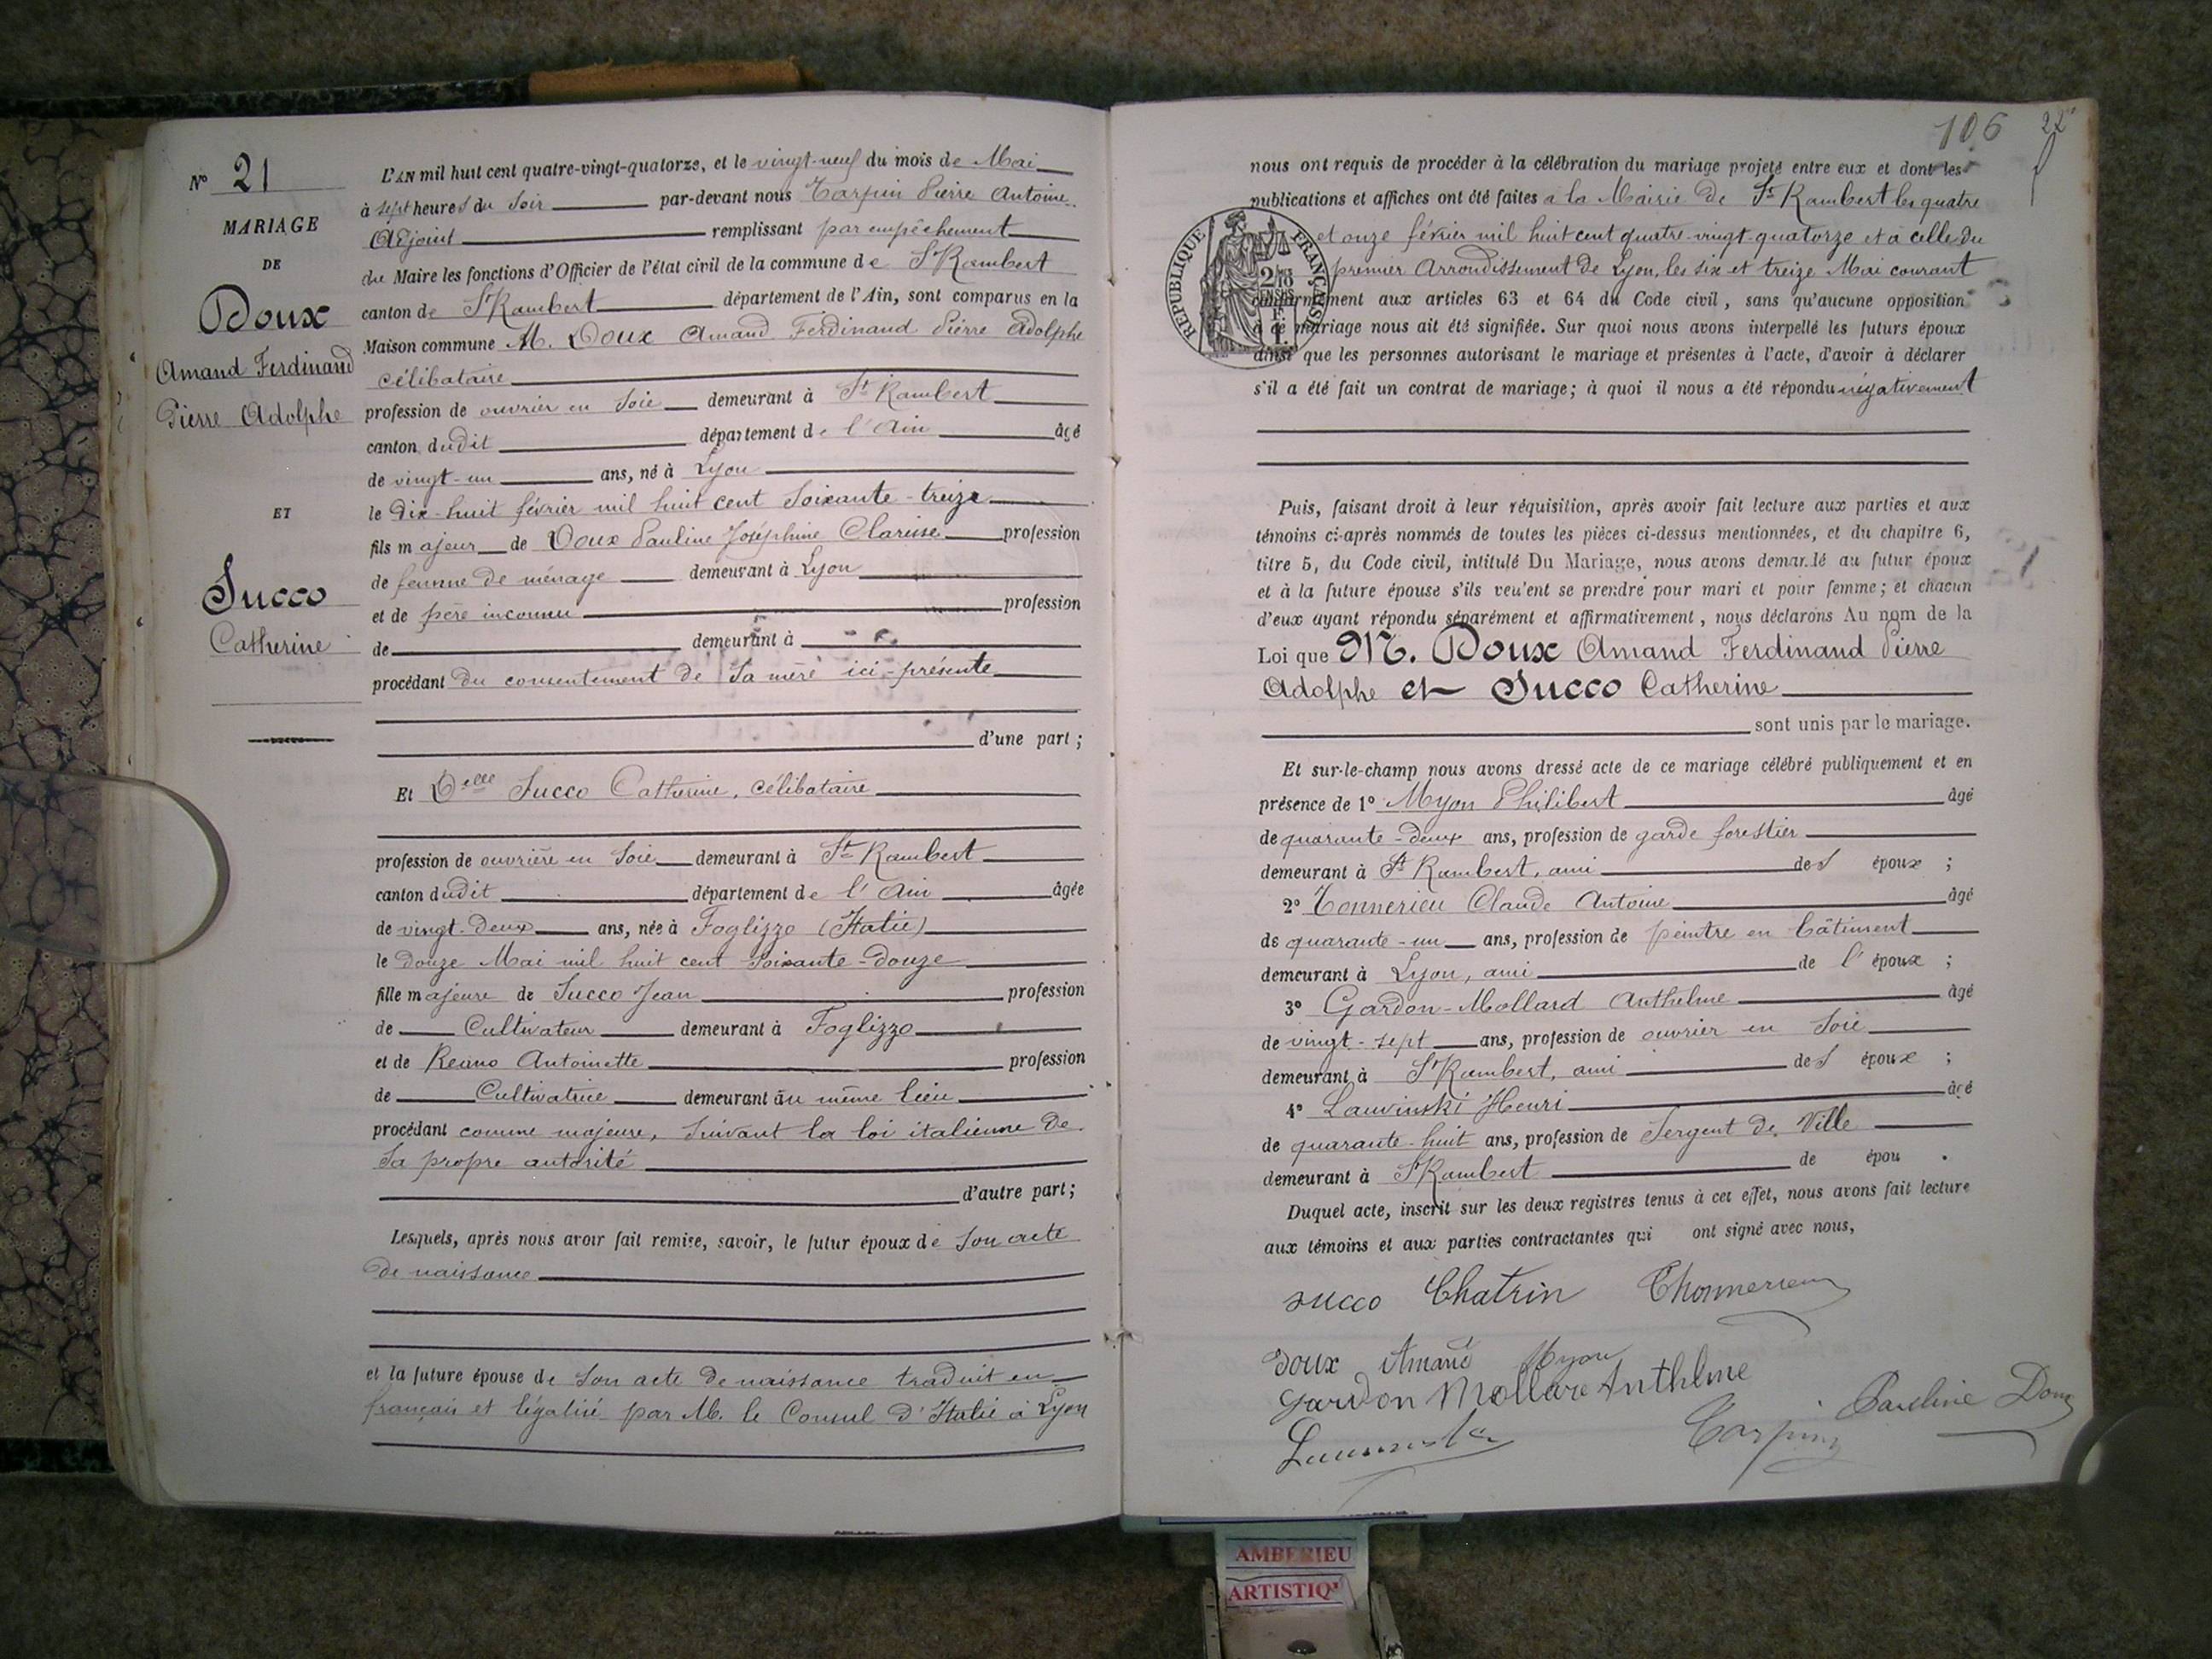 N° 21
MARIAGE
DE
Doux
Amand Ferdinand
Pierre Adolphe
ET
Succo
Catherine
L'AN mil huit cent quatre-vingt-quatorze, et le vingt-neuf du mois de Mai
à sept heures du Soir par-devant nous Tarpin Pierre Antoine
Adjoint remplissant par empêchement
du Maire les fonctions d'Officier de l'état civil de la commune de St Rambert
canton de St Rambert département de l'Ain, sont comparus en la
Maison commune M. Doux Amand Ferdinand Pierre Adolphe
célibataire
profession de ouvrier en Soie demeurant à St Rambert
canton dudit département de l'Ain âgé
de vingt-un ans, né à Lyon
le dix-huit février mil huit cent soixante-treize
fils majeur de Doux Pauline Joséphine Clarisse profession
de femme de ménage demeurant à Lyon
et de père inconnu profession
de demeurant à
procédant du consentement de sa mère ici-présente
d'une part ;
Et Delle Succo Catherine, célibataire
profession de ouvrière en Soie demeurant à St Rambert
canton dudit département de l'Ain âgée
de vingt-deux ans, née à Foglizzo (Italie)
le douze Mai mil huit cent soixante-douze
fille majeure de Succo Jean profession
de Cultivateur demeurant à Foglizzo
et de Antoinette profession
de Cultivatrice demeurant au même lieu
procédant comme majeure, suivant la loi italienne de
sa propre autorité
d'autre part ;
Lesquels, après nous avoir fait remise, savoir, le futur époux de son acte
de naissance
et la future épouse de son acte de naissance traduit en
français et légalisé par M. le Consul d'Italie à Lyon
106 22
nous ont requis de procéder à la célébration du mariage projeté entre eux et dont les
publications et affiches ont été faites à la Mairie de St Rambert les quatre
et onze février mil huit cent quatre-vingt-quatorze et à celle du
premier Arrondissement de Lyon, les six et treize Mai courant
RÉPUBLIQUE FRANÇAISE
conformément aux articles 63 et 64 du Code civil, sans qu'aucune opposition
à ce mariage nous ait été signifiée. Sur quoi nous avons interpellé les futurs époux
ainsi que les personnes autorisant le mariage et présentes à l'acte, d'avoir à déclarer
s'il a été fait un contrat de mariage ; à quoi il nous a été répondu négativement
Puis, faisant droit à leur réquisition, après avoir fait lecture aux parties et aux
témoins ci-après nommés de toutes les pièces ci-dessus mentionnées, et du chapitre 6,
titre 5, du Code civil, intitulé Du Mariage, nous avons demandé au futur époux
et à la future épouse s'ils veulent se prendre pour mari et pour femme ; et chacun
d'eux ayant répondu séparément et affirmativement, nous déclarons Au nom de la
Loi que M. Doux Amand Ferdinand Pierre
Adolphe et Succo Catherine
sont unis par le mariage.
Et sur-le-champ nous avons dressé acte de ce mariage célébré publiquement et en
présence de 1° Myon Philibert âgé
de quarante-deux ans, profession de garde forestier
demeurant à St Rambert, ami des époux ;
2° Tonnerieu Claude Antoine âgé
de quarante-un ans, profession de peintre en bâtiment
demeurant à Lyon, ami de l'époux ;
3° Gardon-Mollard Anthelme âgé
de vingt-sept ans, profession de ouvrier en Soie
demeurant à St Rambert, ami des époux ;
4° Lauvinski Henri âgé
de quarante-huit ans, profession de Sergent de Ville
demeurant à St Rambert de épou .
Duquel acte, inscrit sur les deux registres tenus à cet effet, nous avons fait lecture
aux témoins et aux parties contractantes qui ont signé avec nous,
succo Chatrin Thonnerieu
Doux Amand Myon
gardon Mollare Anthlme
Pauline Doux
Tarpin
AMBERIEU
ARTISTIQ